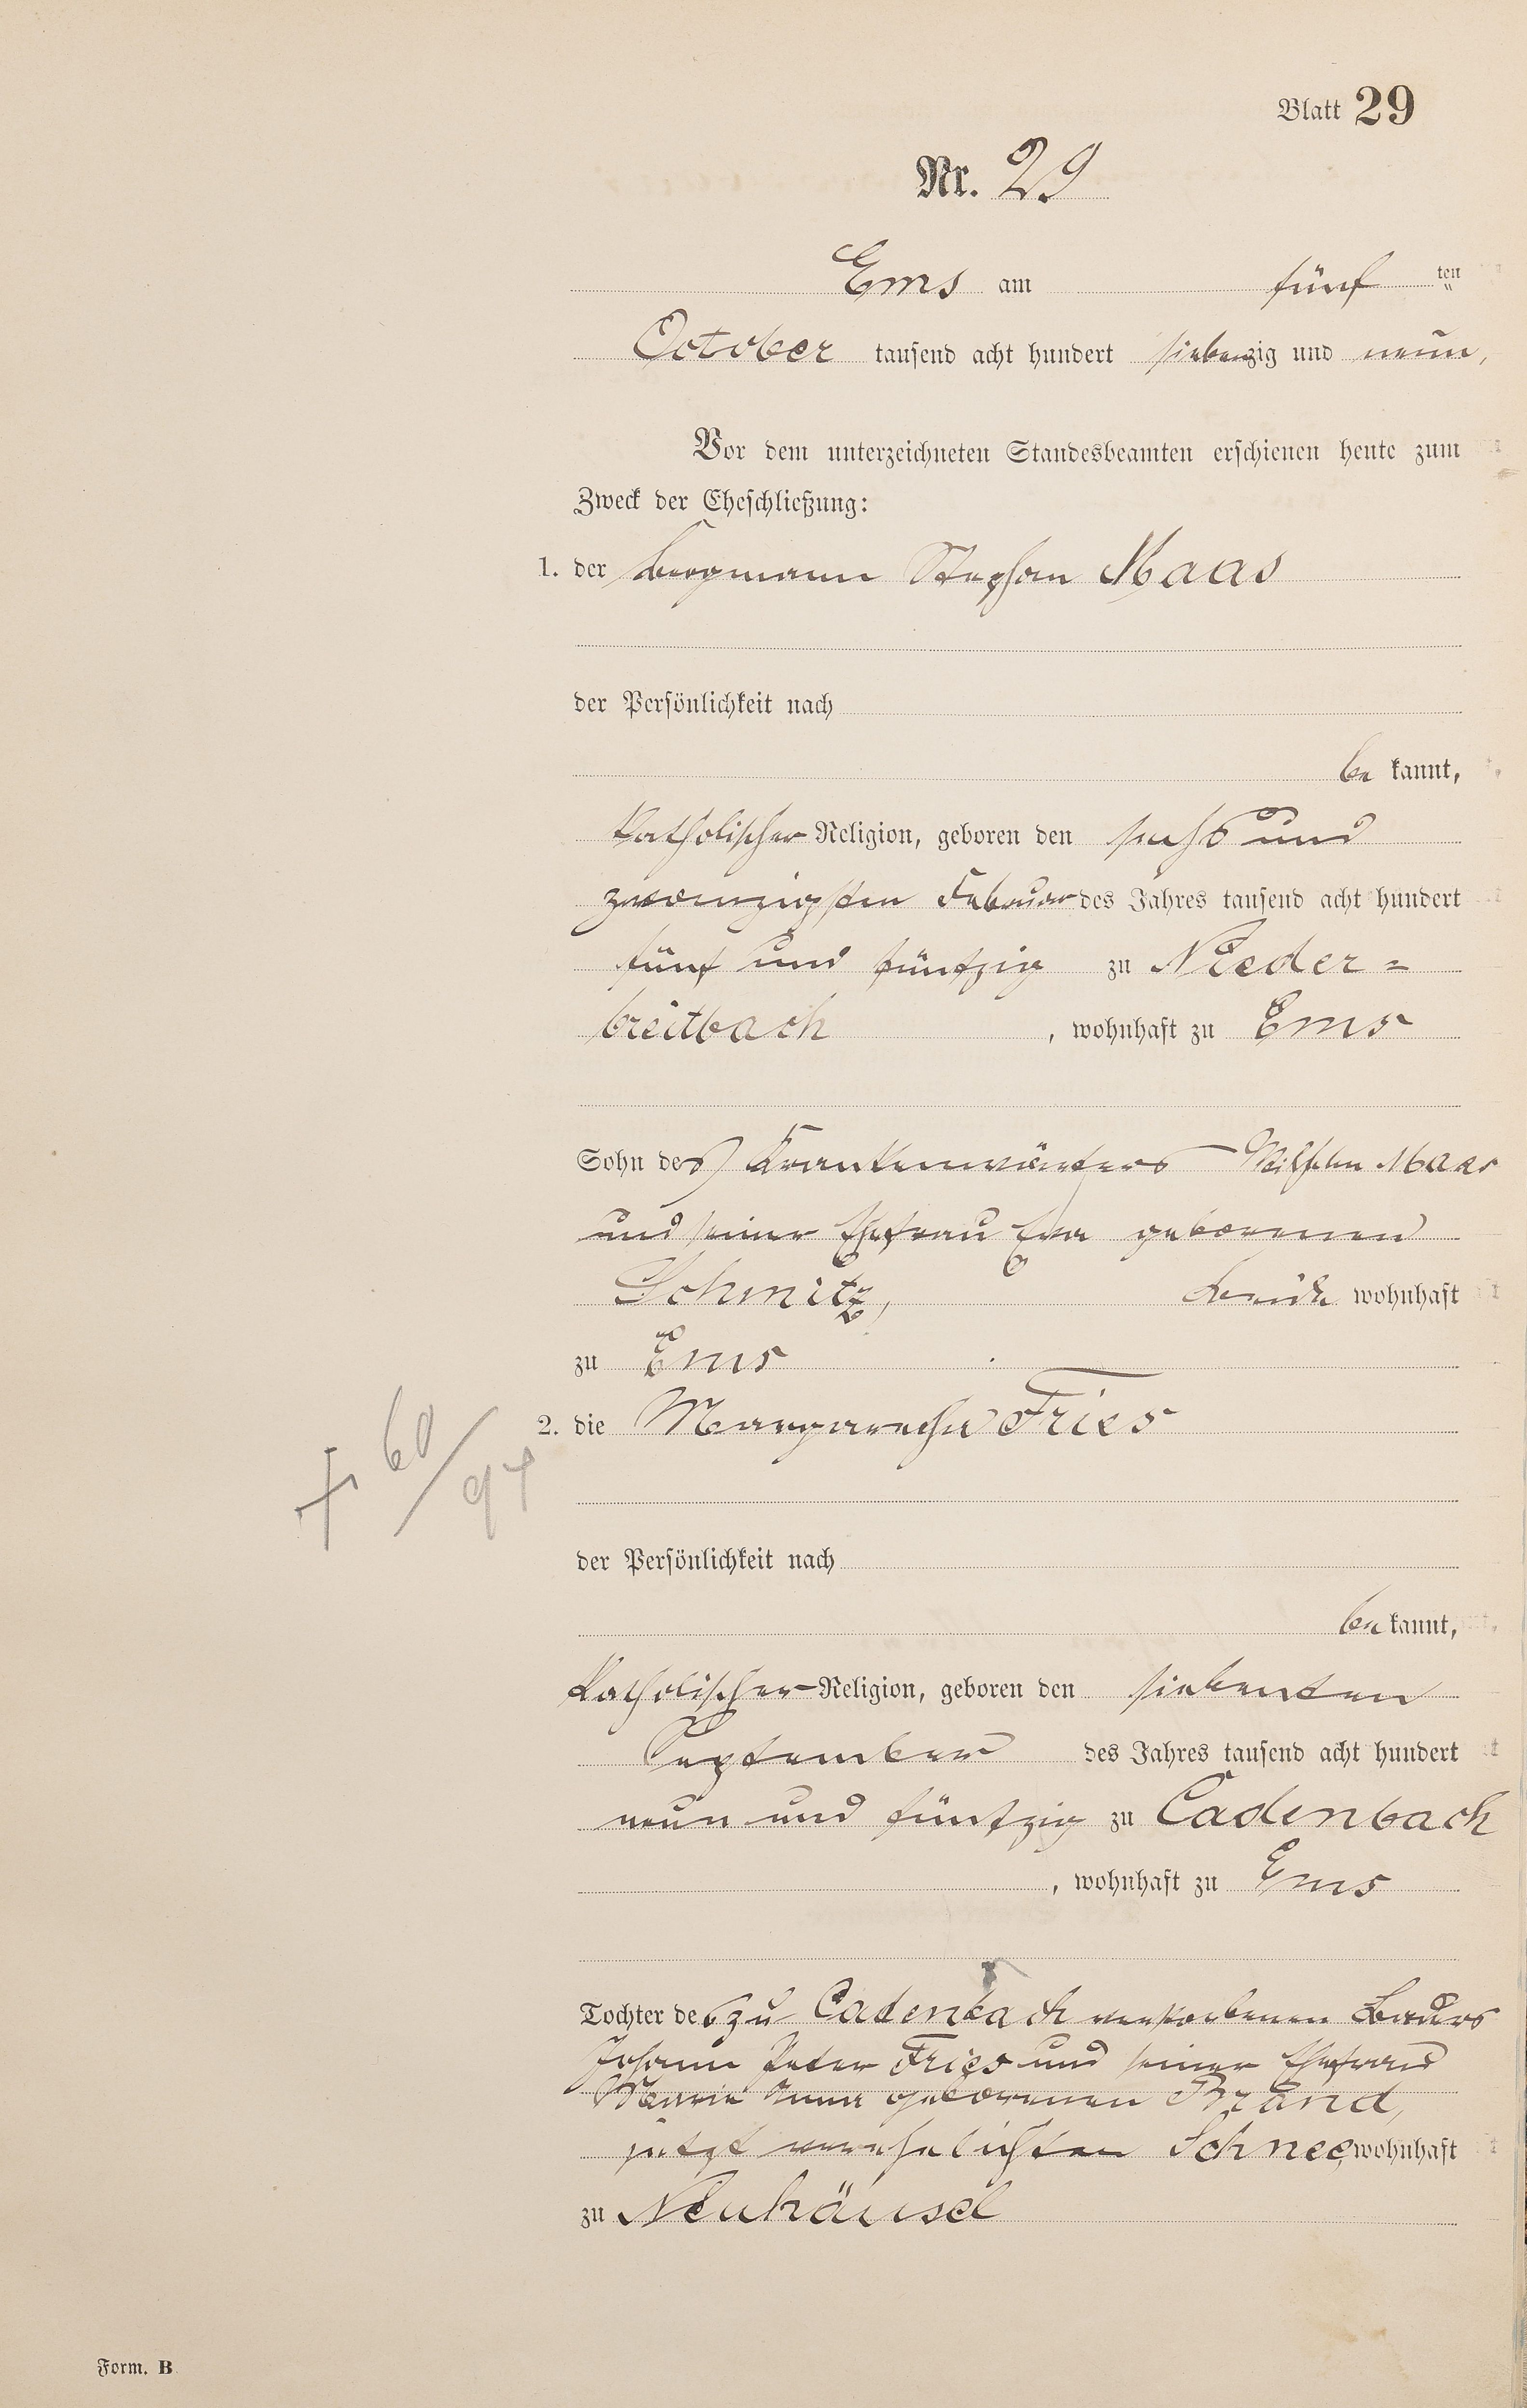 Blatt 29
Nr. 29
Ems am fünf ten
October tausend acht hundert siebenzig und neun,
Vor dem unterzeichneten Standesbeamten erschienen heute zum
Zweck der Eheschließung:
1. der Bergmann Stephan Maas
der Persönlichkeit nach
be kannt,
katholischer Religion, geboren den sechs und
zwanzigsten Februar des Jahres tausend acht hundert
fünf und fünfzig zu Nieder=
breitbach, wohnhaft zu Ems
Sohn des Krankenwärters Wilhelm Maas
und seiner Ehefrau Eva geborenen
Schmitz, beide wohnhaft
zu Ems
2. die Margaretha Fries
+ 60/94
der Persönlichkeit nach
be kannt,
katholischer Religion, geboren den siebenten
September des Jahres tausend acht hundert
neun und fünfzig zu Cadenbach
, wohnhaft zu Ems
Tochter des zu Cadenbach verstorbenen Bauers
Johann Peter Fries und seiner Ehefrau
Maria Anna geborenen Brand,
jetzt verehelichten Schnee, wohnhaft
zu Neuhäusel
Form. B